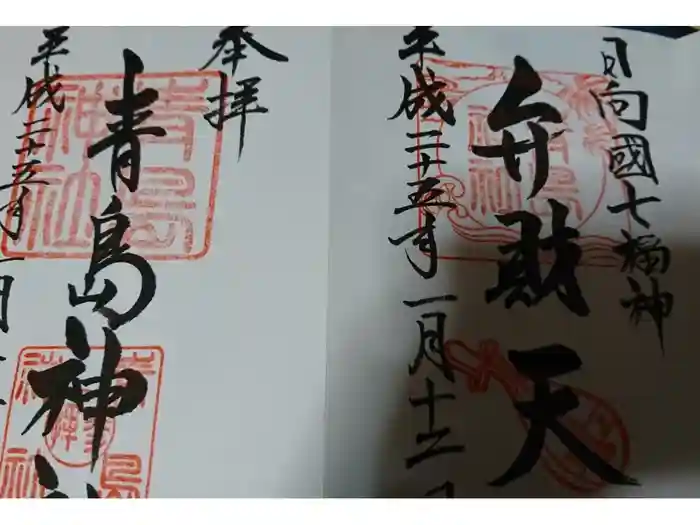 日向國七福神
弁財天
平成二十五年一月十二日
奉拝
青島神社
平成二十五年一月十
青島神社